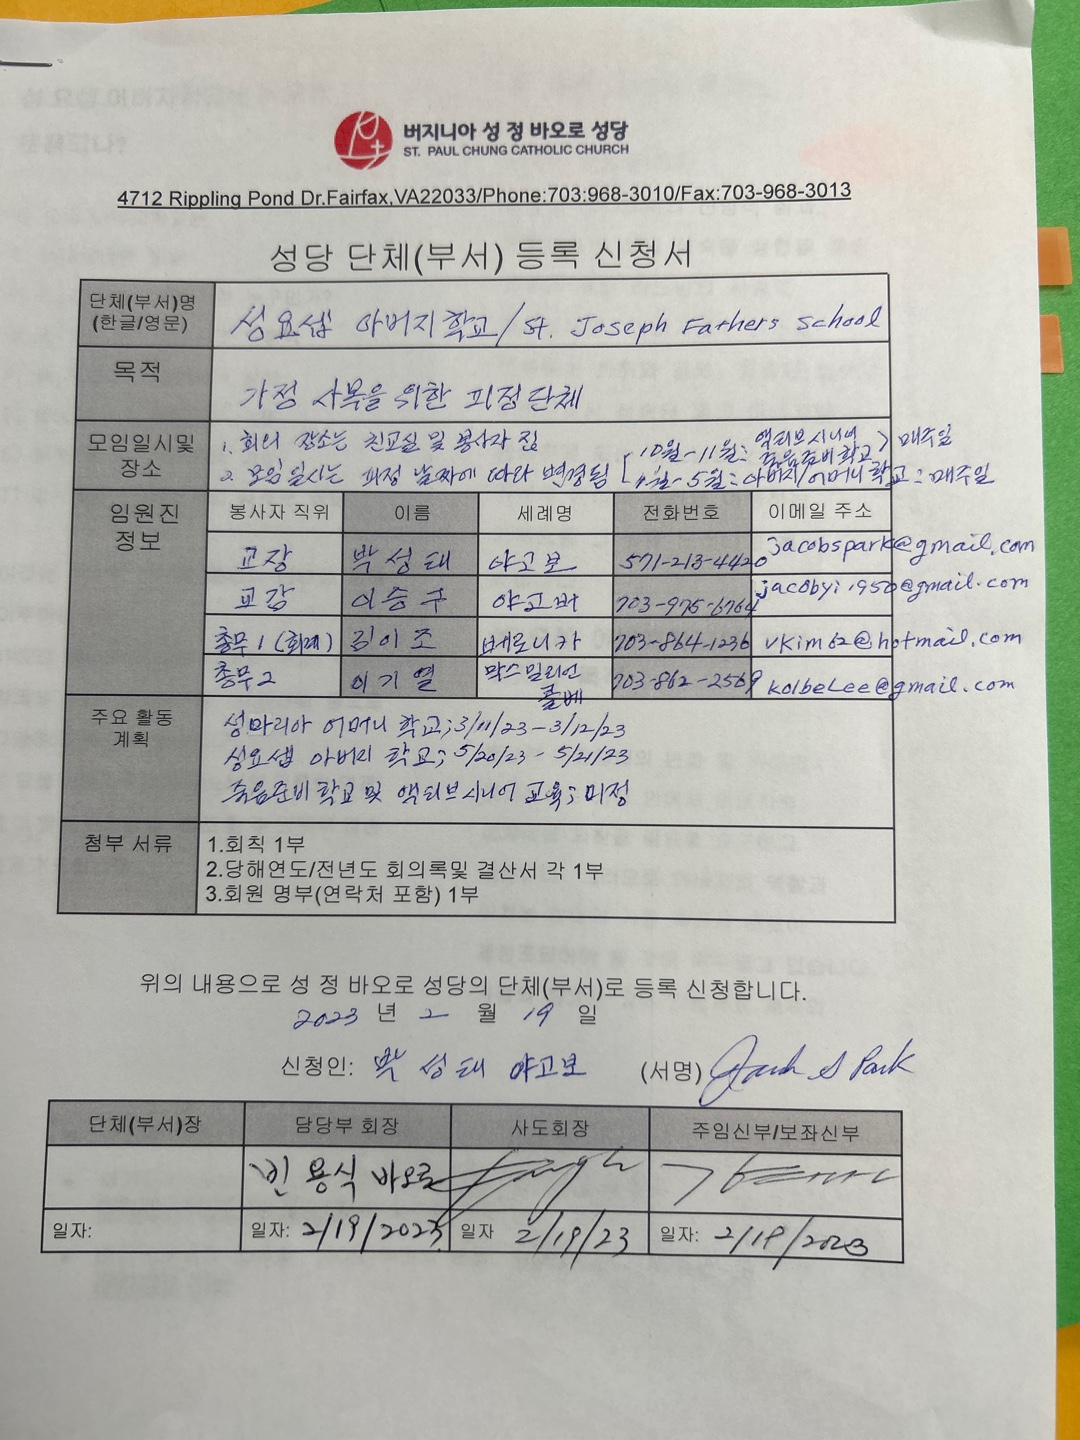 버지니아 성 정 바오로 성당
ST. PAUL CHUNG CATHOLIC CHURCH
4712 Rippling Pond Dr.Fairfax,VA22033/Phone:703:968-3010/Fax:703-968-3013
성당 단체(부서) 등록 신청서
단체(부서)명
(한글/영문)
성요셉 아버지학교/St. Joseph Fathers School
목적
가정 사목을 위한 피정단체
모임일시및
장소
1. 회의 장소는 친교실 및 봉사자 집
2. 모임 일시는 피정 날짜에 따라 변경됨
10월-11월: 액티브시니어
죽음준비학교 > 매주일
4월-5월: 아버지/어머니학교: 매주일
임원진
정보
봉사자 직위 이름 세례명 전화번호 이메일 주소
교장 박성태 야고보 571-213-4420 jacobspark@gmail.com
교감 이승구 야고버 703-975-6764 jacobyi1950@gmail.com
총무1 (회계) 김이조 베로니카 703-864-1236 vkim62@hotmail.com
총무2 이기열 막스밀리언 콜베 703-862-2569 kolbelee@gmail.com
주요 활동
계획
성마리아 어머니 학교; 3/11/23-3/12/23
성요셉 아버지 학교; 5/20/23 - 5/21/23
죽음준비학교 및 액티브시니어 교육; 미정
첨부 서류
1.회칙 1부
2.당해연도/전년도 회의록및 결산서 각 1부
3.회원 명부(연락처 포함) 1부
위의 내용으로 성 정 바오로 성당의 단체(부서)로 등록 신청합니다.
2023 년 2 월 19 일
신청인: 박성태 야고보 (서명) Jacob S Park
단체(부서)장 담당부 회장 사도회장 주임신부/보좌신부
빈용식 바오로
일자: 일자: 2/19/2023 일자 2/19/23 일자: 2/19/2023